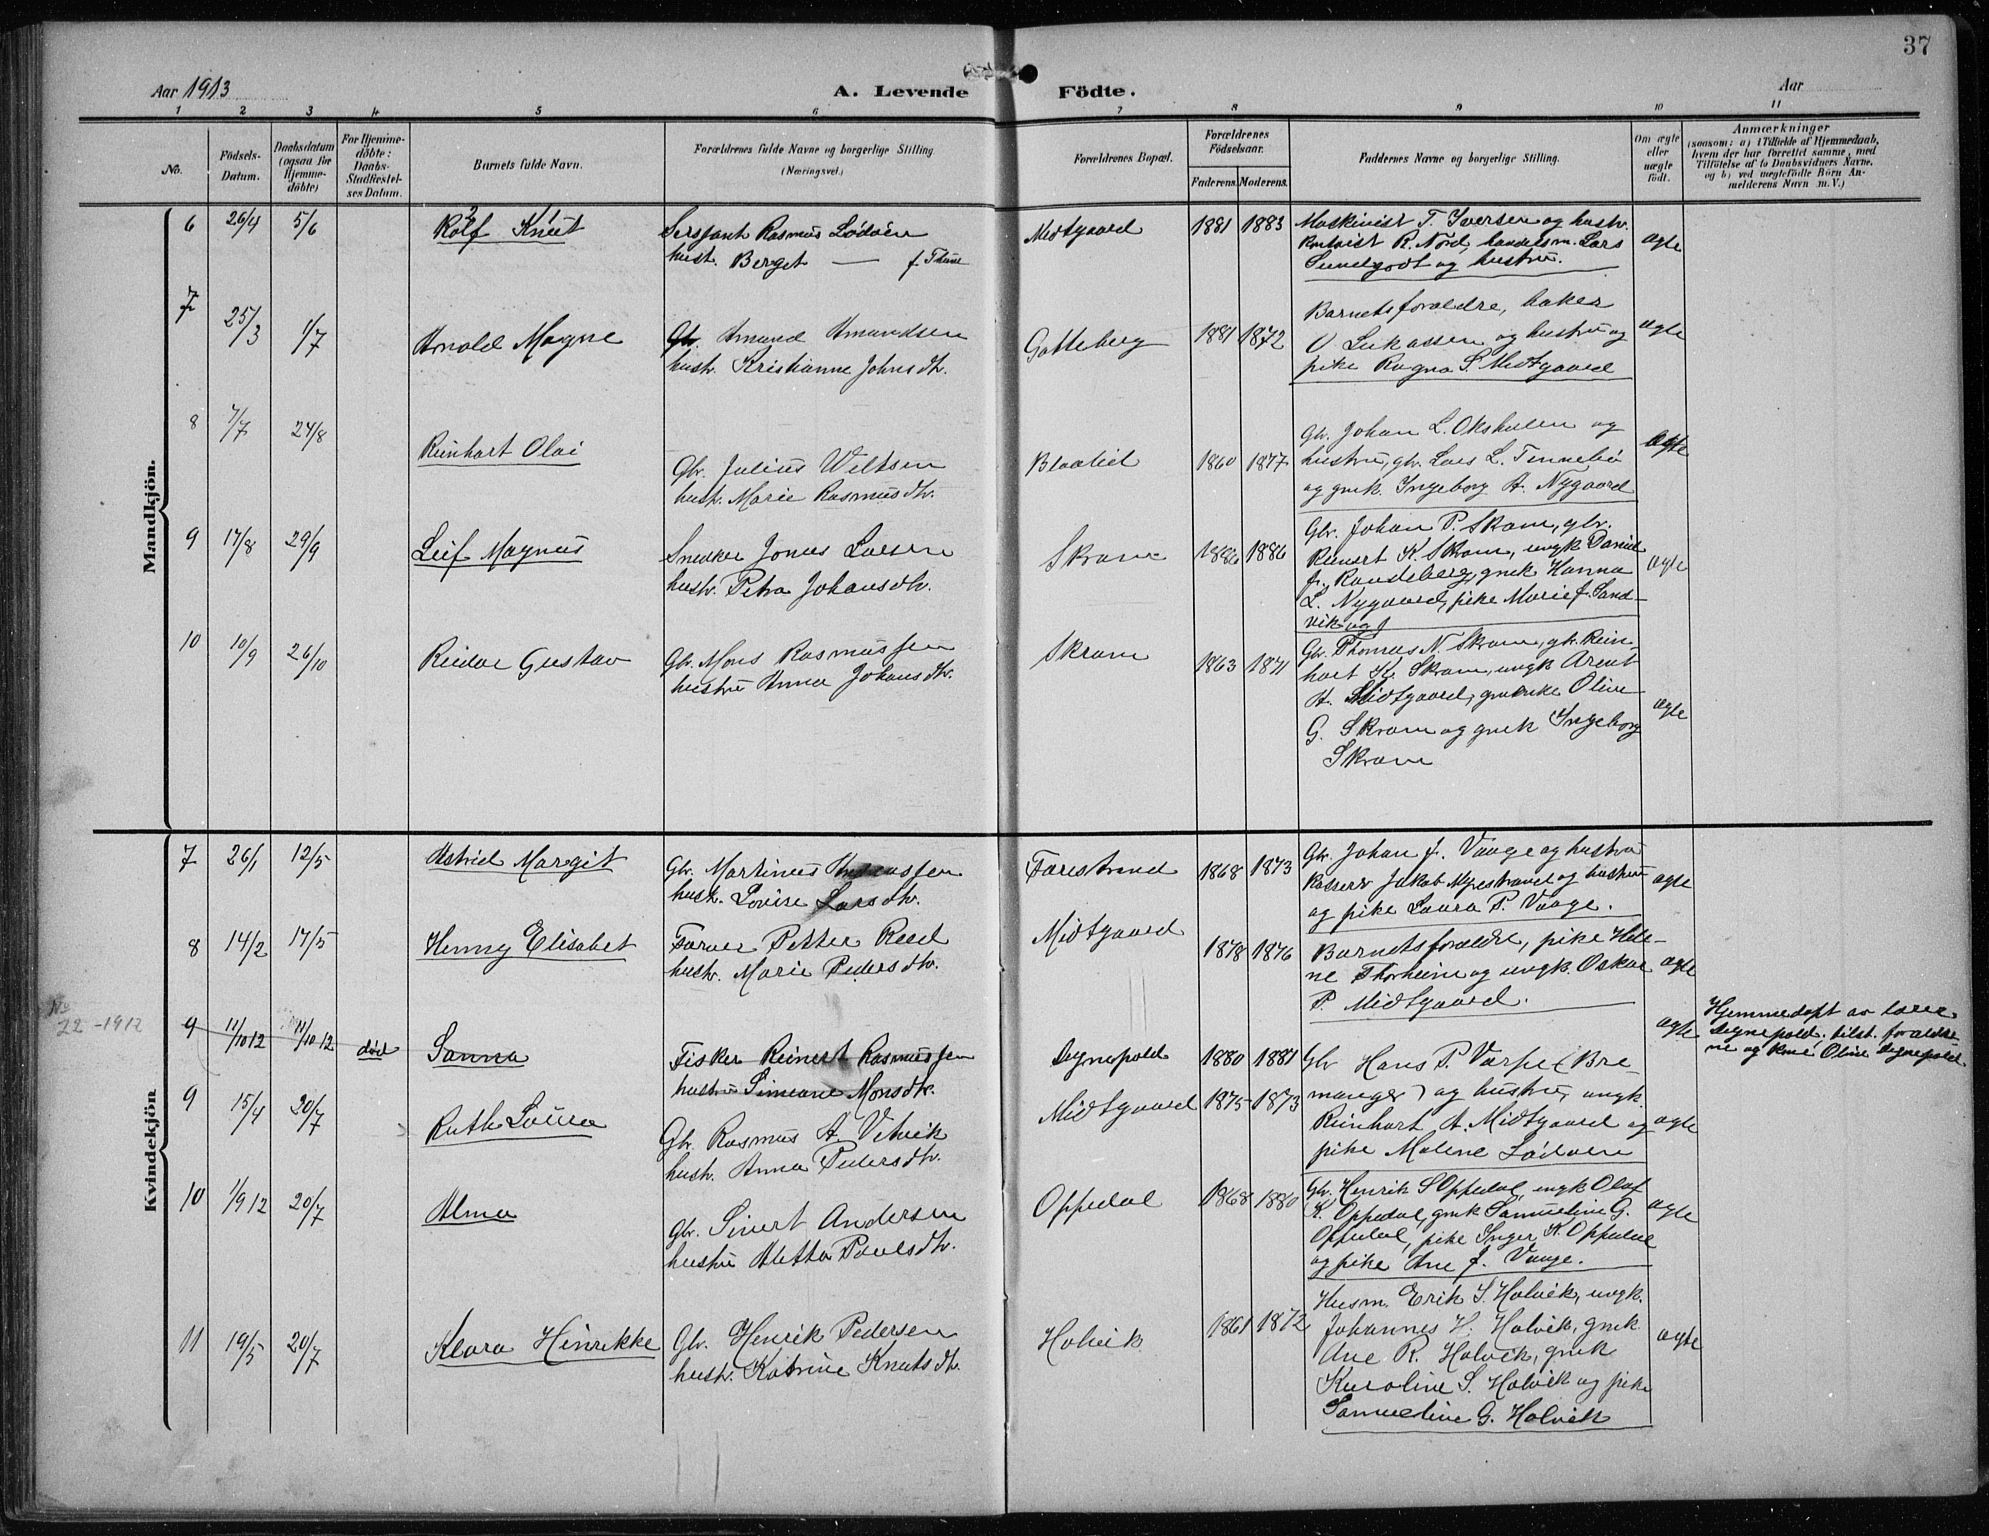 37
Aar 1913
A. Levende Födte.
Aar
1 2 3 4 5 6 7 8 9 10 11
No.
Födsels-Datum.
Daabsdatum (ogsaa for Hjemme-döbte)
For Hjemme-döbte: Daabs-Stadfæstel-ses Datum.
Barnets fulde Navn.
Forældrenes fulde Navne og borgerlige Stilling (Næringsvei.)
Forældrenes Bopæl.
Forældrenes Födselsaar.
Faderens. Moderens.
Faddernes Navne og borgerlige Stilling.
Om ægte eller uægte födt.
Anmærkninger
(saasom: a) i Tilfælde af Hjemmedaab,
hvem der har forrettet samme, med
Tilföielse af to Daabsvidners Navne,
og b) ved uægtefödte Börn An-
melderens Navn m. V.)
Mandkjön.
6 26/4 5/6 Rolf Knut
2 1
Sersjant Rasmus Lødøen
hust. Berget — f. Thune
Midtgaard 1881 1883
Maskinist T. Iversen og hustr.
R. Nord, handelsm. Lars
Sundgodt og hustru.
ægte
7 25/3 1/7 Arnold Magne
Gbr. Amund Amundsen
hustr. Kristianne Johnsdtr.
Gotteberg 1881 1872
Barnets forældre, baker
O Lukassen og hustru og
pike Ragna S. Midtgaard
ægte
8 7/7 24/8 Reinhart Olai
Gbr. Julius Weltsen
hustr. Marie Rasmusdtr.
Blaalid 1860 1877
Gbr. Johan L. Okshulen og
hustru, gbr. Lars L. Tennebø
og gmk. Ingeborg A. Nygaard
ægte
9 17/8 29/9 Leif Magnus
Snedker Jonas Larsen
hustr. Petra Johansdtr.
Skram 1886 1886
Gbr. Johan P. Skram, gbr.
Reinert K. Skram, ungk Daniel
J. Raudeberg, gmk Hanna
L. Nygaard, pike Marie J. Sand-
vik og J
ægte
10 10/9 26/10 Reidar Gustav
Gbr. Mons Rasmussen
hustru Anna Johansdtr.
Skram 1863 1871
Gbr. Thomas N. Skram, gbr. Rein-
hart K. Skram, ungk Arent
A. Midtgaard, Oline
G. Skram og gmk Ingeborg
Skram
ægte
Kvindekjön
7 26/1 12/5 Astrid Margit
Gbr. Martinus Andreassen
hustr. Lovise Larsdtr.
Farestrand 1868 1873
Gbr. Johan J. Vaage og hustru
kasserer Jakob Myrestrand og hustru
og pike Laura P. Vaage.
ægte
8 14/2 17/5 Henny Elisabet
Farver Petter Reed
hustr. Marie Pedersdtr.
Midtgaard 1878 1876
Barnets forældre, pike Hele-
ne Thorheim og ungk. Oskar
P. Midtgaard.
ægte
No
22-1912
9 11/10 12 11/10 12 død Sanna
Fisker Reinert Rasmussen
hustru Simeane Monsdtr.
Degnepold 1880 1881
ægte
Hjemmedøpt av lærer
Degnepold, tilst. forældre-
ne og kone Oline Degnepold
9 15/4 20/7 Ruth Laura
Gbr. Rasmus A. Vetvik
hustr. Anna Pedersdtr.
Midtgaard 1875 1873
Gbr Hans P. Varpe (Bre-
manger) og hustru, ungk.
Reinhart A. Midtgaard og
pike Malene Lødøen
ægte
10 1/9 12 20/7 Alma
Gbr. Sivert Andersen
hustru Aletta Paulsdtr.
Oppedal 1868 1880
Gbr. Henrik S Oppedal, ungk Olaf
K. Oppedal, gmk Samueline G.
Oppedal, pike Inger K. Oppedal
og pike Ane J. Vaage.
ægte
11 19/5 20/7 Klara Hinrikke
Gbr. Henrik Pedersen
hustr. Katrine Knutsdtr.
Holvik 1861 1872
Husm. Erik S. Holvik, ungk.
Johannes H. Holvik, gmk
Ane R. Holvik, gmk
Karoline S. Holvik og pike
Samueline G. Holvik
ægte